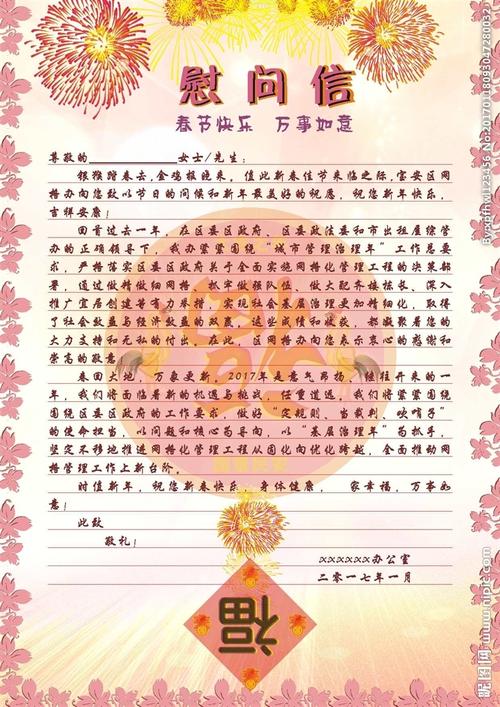 慰问信
春节快乐 万事如意
尊敬的____________女士/先生：
银猴踏春去，金鸡报晚来，值此新春佳节来临之际，宝安区网
格办向您致以节日的问候和新年最美好的祝愿，祝您新年快乐，
吉祥安康！
回首过去一年，在区委区政府、区委政法委和市出租屋综管
办的正确领导下，我办紧紧围绕“城市管理治理年”工作总要
求，严格落实区委区政府关于全面实施网格化管理工程的决策部
署，通过做精做细网格、抓牢做强队伍、做大配齐楼栋长、深入
推广宜居创建等有力举措，实现社会基层治理更加精细化，取得
了社会效益与经济效益的双赢，这些成绩和收获，都凝聚着您的
大力支持和无私的付出，在此，区网格办向您表示衷心的感谢和
崇高的敬意。
春回大地，万象更新，2017年是意气昂扬、继往开来的一
年，我们将面临着新的机遇与挑战，任重道远，我们将紧紧围绕
围绕区委区政府的工作要求，做好“定规则、当裁判、吹哨子”
的使命担当，以问题和核心为导向，以“基层治理年”为抓手，
坚定不移地推进网格化管理工程从固化向优化跨越，全面推动网
格管理工作上新台阶。
时值新年，祝您新春快乐，身体健康， 家幸福，万事如
意！
此致
敬礼！
xxxxxx办公室
二零一七年一月
福
昵图网 www.nipic.com
By:qofhyj123456 No:20170118093047280032